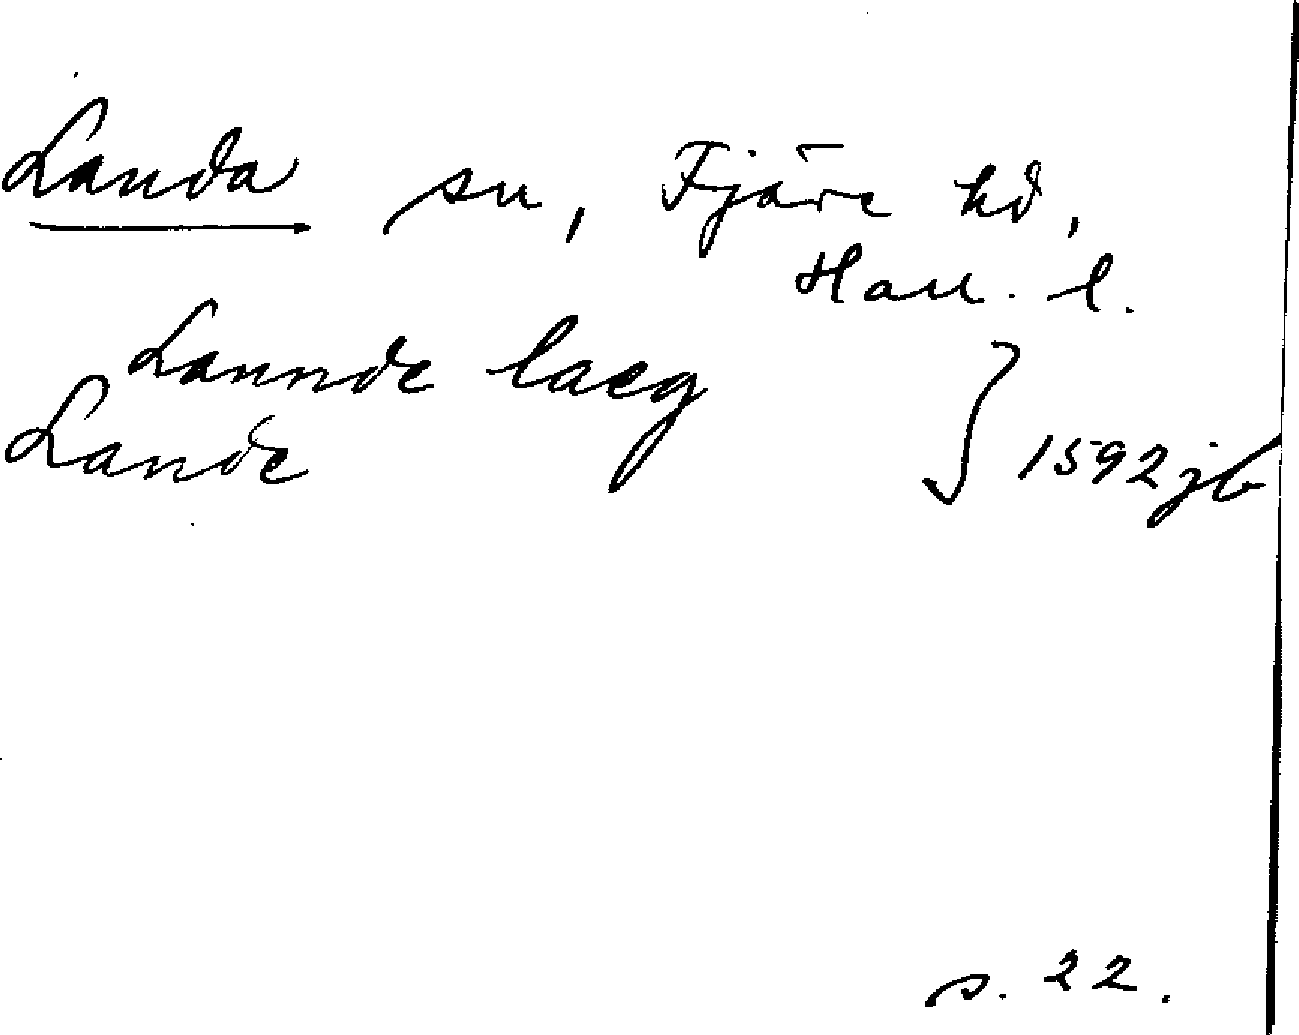 Landa sn, Fjäre hd,
Hall. l.
Lannde laeg
Lande } 1592 jb
s. 22.